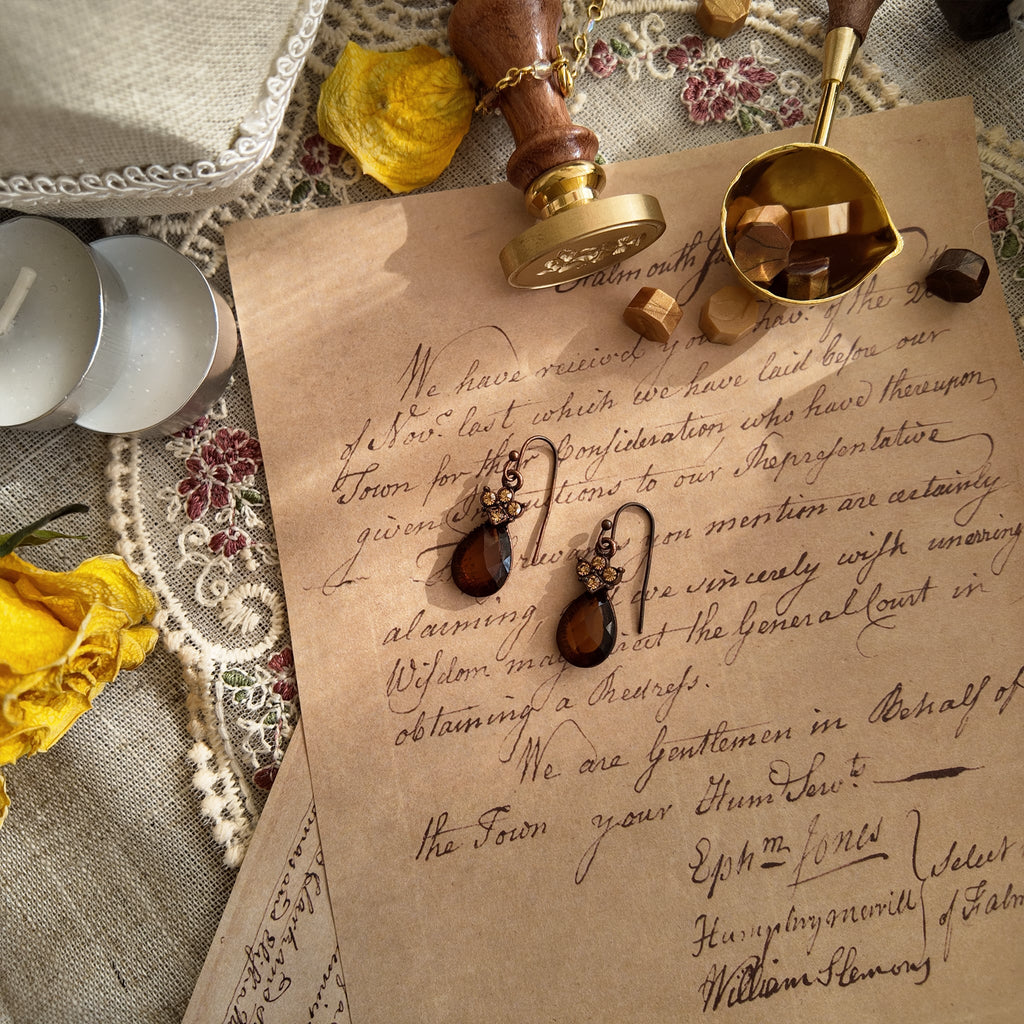 Falmouth
We have receiv'd you hav.g of the 2
of Nov.r last which we have laid before our
Town for their Consideration who have thereupon
given In utions to our Repreſentative
you mention are certainly
alarming, we sincerely wiſh unerring
Wiſdom may the General Court in
obtaining a Redreſs.
We are Gentlemen in Behalf of
the Town your Hum.e Serv.ts
Eph.m Jones
Select
Humphry merrill
of Falm
William Slemons